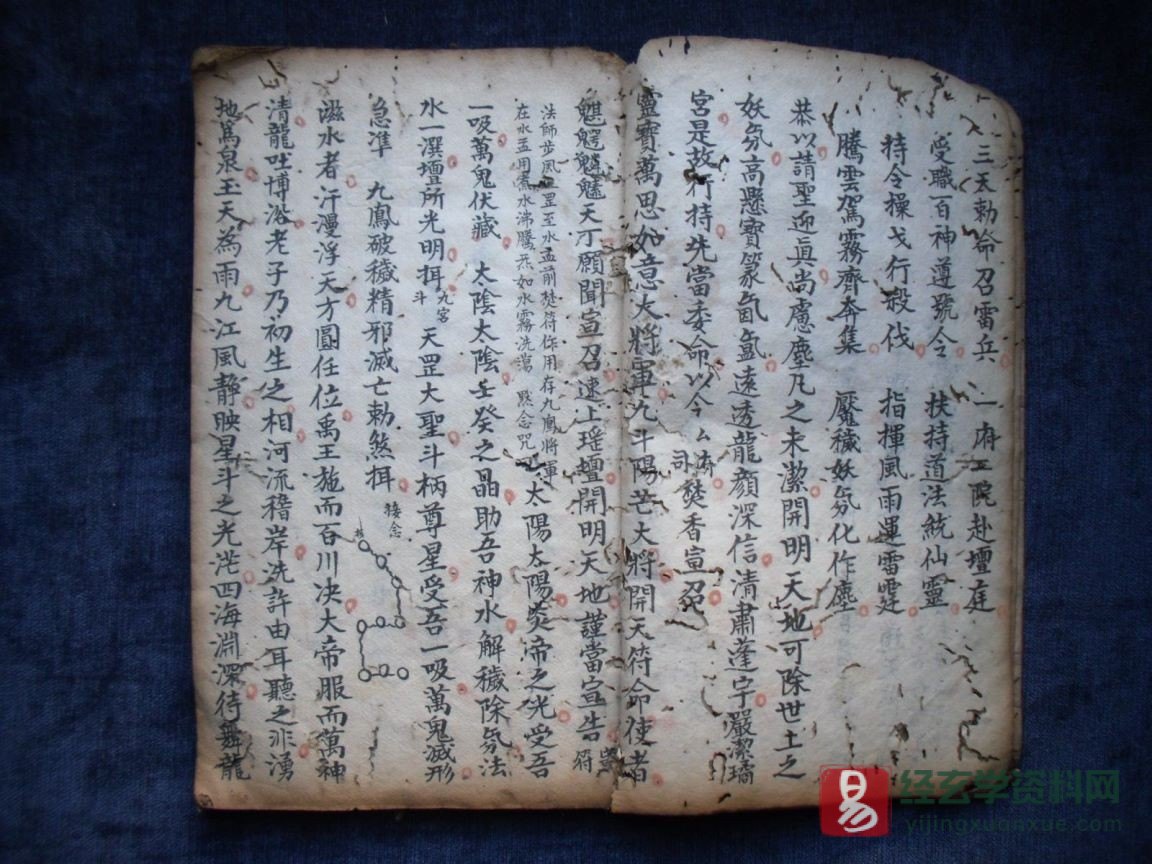 三天勅命召雷兵 一府二院赴壇庭
受職百神遵號令 扶持道法統仙靈
持令操戈行殺伐 指揮風雨運雷霆
騰雲駕霧齊奔集 魘穢妖氛化作塵
恭以請聖迎真尚慮塵凡之未潔開明天地可除世土之
妖氛高懸寶篆氤氳遠透龍顏深信清肅蓬宇嚴潔璚
宮是故行持先當委命以今厶府司焚香宣召
靈寶萬思如意大將軍九斗陽芒大將開天符命使者
天丁願聞宣召速上瑤壇開明天地謹當宣告符
法師步風罡至水盂前焚符作用存九鳳將軍
在水盂用焦水沸騰炁如水霧洗蕩 默念咒
太陽太陽炎帝之光受吾
一吸萬鬼伏藏 太陰太陰壬癸之晶助吾神水解穢除氛法
水一潠壇所光明揖九宮斗天罡大聖斗柄尊星受吾一吸萬鬼滅形
急準 九鳳破穢精邪滅亡勅煞揖 接念
滋水者汗漫浮天方圓任位禹王施而百川决大帝服而萬神
清龍吐博浴老子乃初生之相河流稽岸洗許由耳聽之非湧
地為泉玉天為雨九江風靜映星斗之光茫四海淵深待舞龍
易
经玄学资料网
yijingxuanxue.com